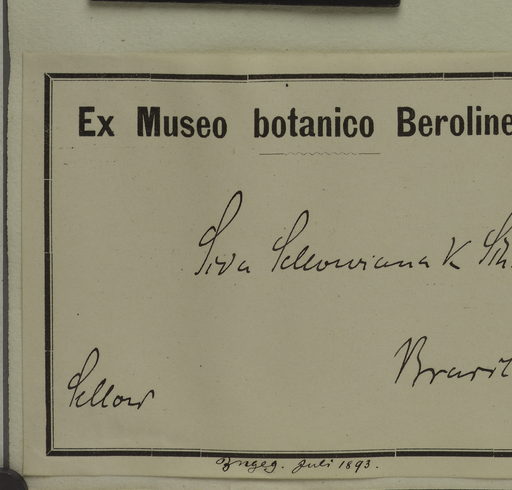 Ex Museo botanico Beroline
Sida Sellowiana K Sch
Brasil
Sellow
Ingeg. Juli 1893.